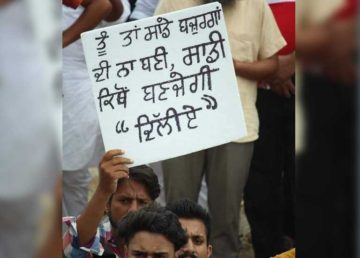 ਤੂੰ ਤਾਂ ਸਾਡੇ ਬਜ਼ੁਰਗਾਂ
ਦੀ ਨਾ ਬਣੀ, ਸਾਡੀ
ਕਿਥੋਂ ਬਣਜੇਗੀ
“ਦਿੱਲੀਏ”